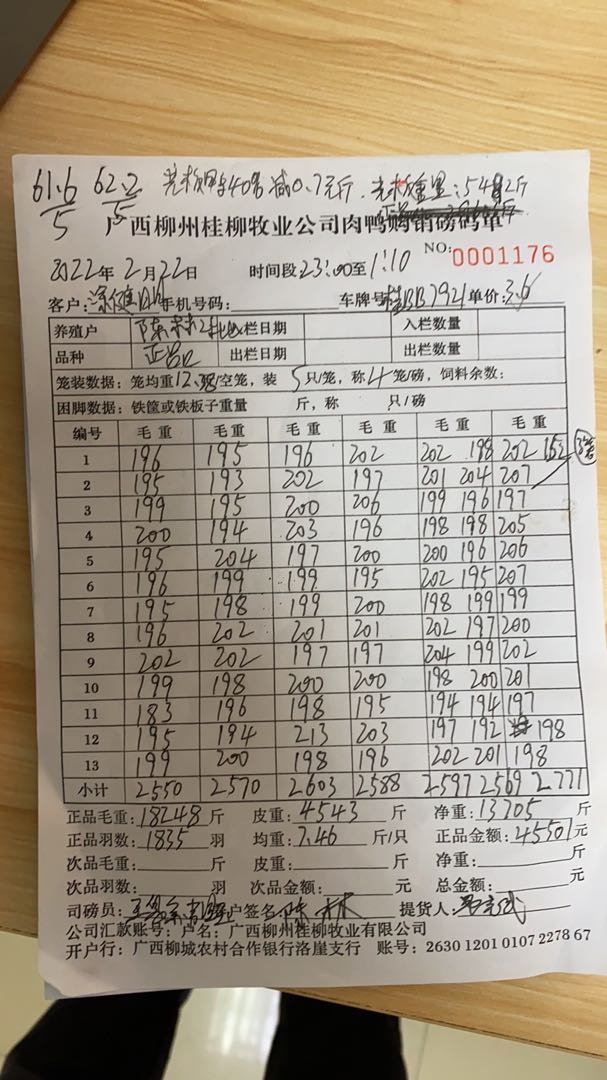 61.6/5 62.2/5 40% 减0.7元/斤
广西柳州桂柳牧业公司肉鸭购销磅码单
NO: 0001176
2022年2月22日 时间段23:00至1:10
客户: 手机号码: 车牌号 7921 单价:3.6
养殖户 陈林 出栏日期 入栏数量
品种 正品 出栏日期 出栏数量
笼装数据:笼均重12.38/空笼,装5只/笼,称4笼/磅,饲料余数:
困脚数据:铁筐或铁板子重量 斤,称 只/磅
编号 毛重 毛重 毛重 毛重 毛重 毛重
1 196 195 196 202 202 198 202 152
2 195 193 202 197 201 204 207
3 199 195 200 206 199 196 197
4 200 194 203 196 198 198 205
5 195 204 197 200 200 196 206
6 196 199 199 195 202 195 207
7 195 198 199 200 198 199 199
8 196 202 201 201 202 197 200
9 202 202 197 197 204 199 202
10 199 198 200 200 198 200 201
11 183 196 198 195 194 194 197
12 195 194 213 203 197 192 198
13 199 200 198 196 202 201 198
小计 2550 2570 2603 2588 2597 2569 2771
正品毛重:18248斤 皮重:4543斤 净重:13705斤
正品羽数:1835羽 均重:7.46斤/只 正品金额:45501元
次品毛重: 斤 皮重: 斤 净重: 斤
次品羽数: 羽 次品金额: 元 总金额: 元
司磅员: 户签名:陈林 提货人:
公司汇款账号:户名:广西柳州桂柳牧业有限公司
开户行:广西柳城农村合作银行洛崖支行 账号:2630 1201 0107 2278 67